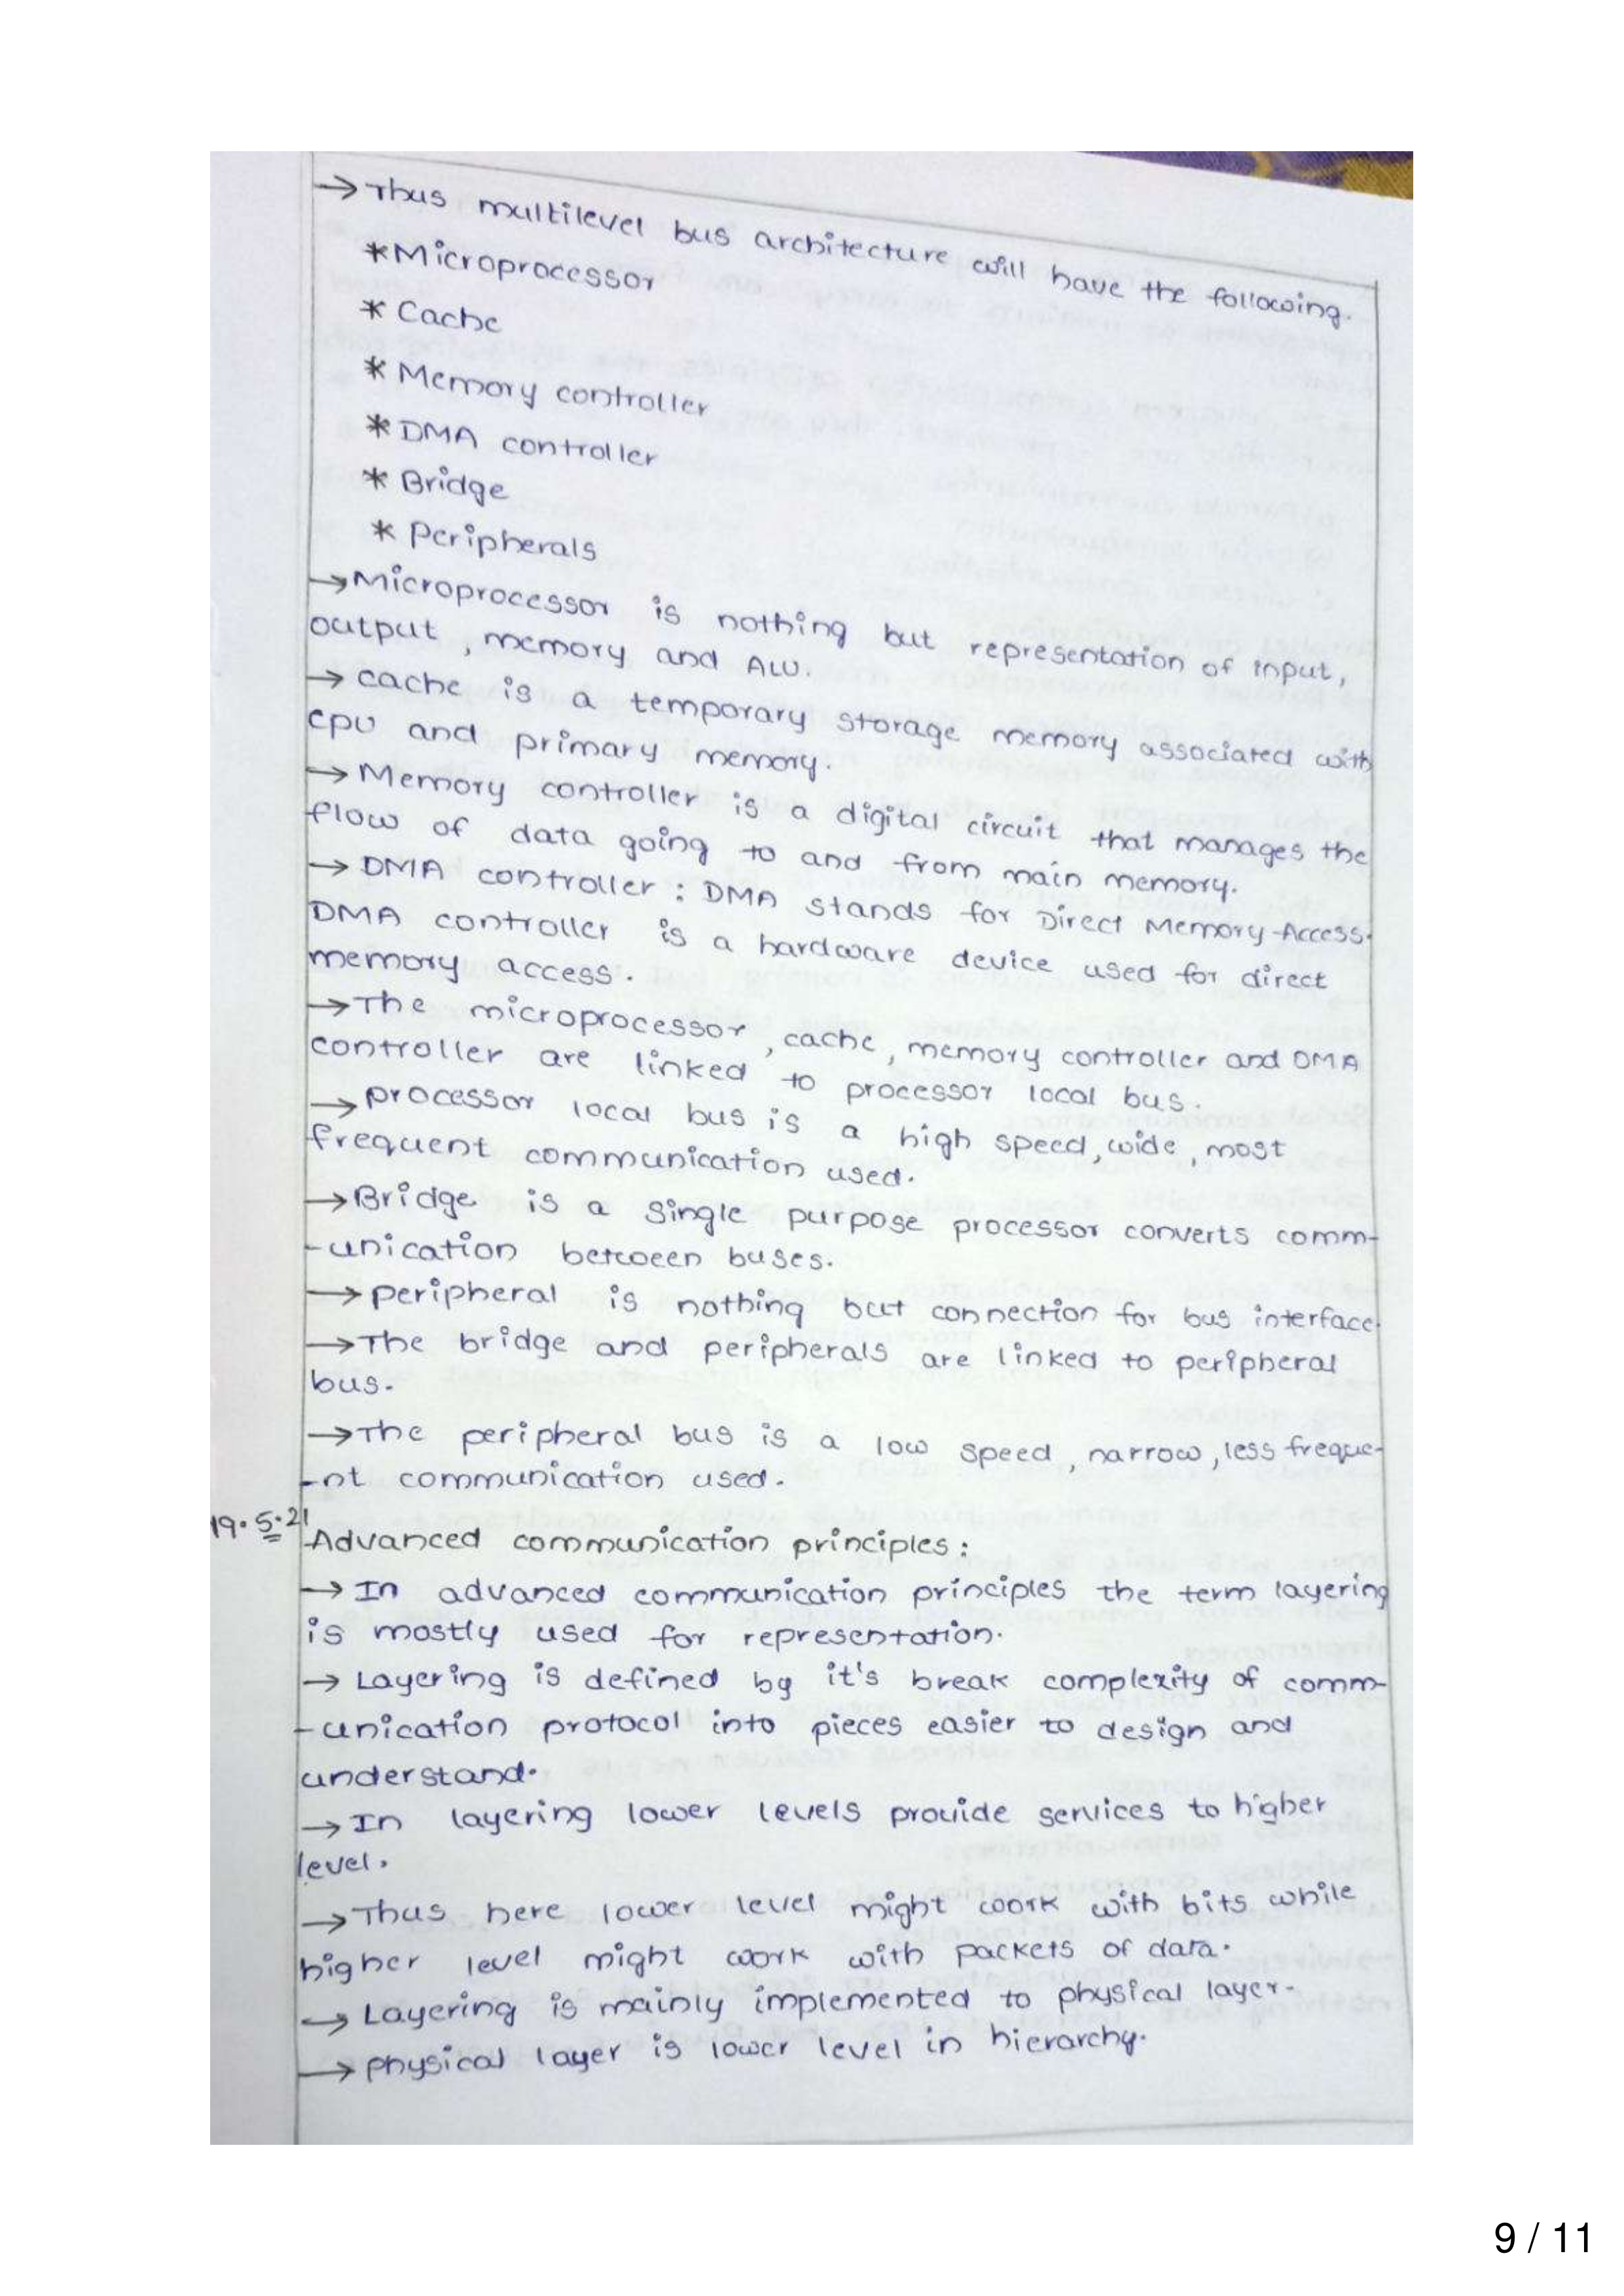 → Thus multilevel bus architecture will have the following.
* Microprocessor
* Cache
* Memory controller
* DMA controller
* Bridge
* Peripherals
→ Microprocessor is nothing but representation of input,
output, memory and ALU.
→ cache is a temporary storage memory associated with
cpu and primary memory.
→ Memory controller is a digital circuit that manages the
flow of data going to and from main memory.
→ DMA controller : DMA stands for Direct Memory-Access.
DMA controller is a hardware device used for direct
memory access.
→ The microprocessor, cache, memory controller and DMA
controller are linked to processor local bus.
→ processor local bus is a high speed, wide, most
frequent communication used.
→ Bridge is a single purpose processor converts comm-
-unication between buses.
→ peripheral is nothing but connection for bus interface.
→ The bridge and peripherals are linked to peripheral
bus.
→ The peripheral bus is a low speed, narrow, less freque-
-nt communication used.
19.5.21
Advanced communication principles :
→ In advanced communication principles the term layering
is mostly used for representation.
→ Layering is defined by it's break complexity of comm-
-unication protocol into pieces easier to design and
understand.
→ In layering lower levels provide services to higher
level.
→ Thus here lower level might work with bits while
higher level might work with packets of data.
→ Layering is mainly implemented to physical layer.
→ physical layer is lower level in hierarchy.
9 / 11